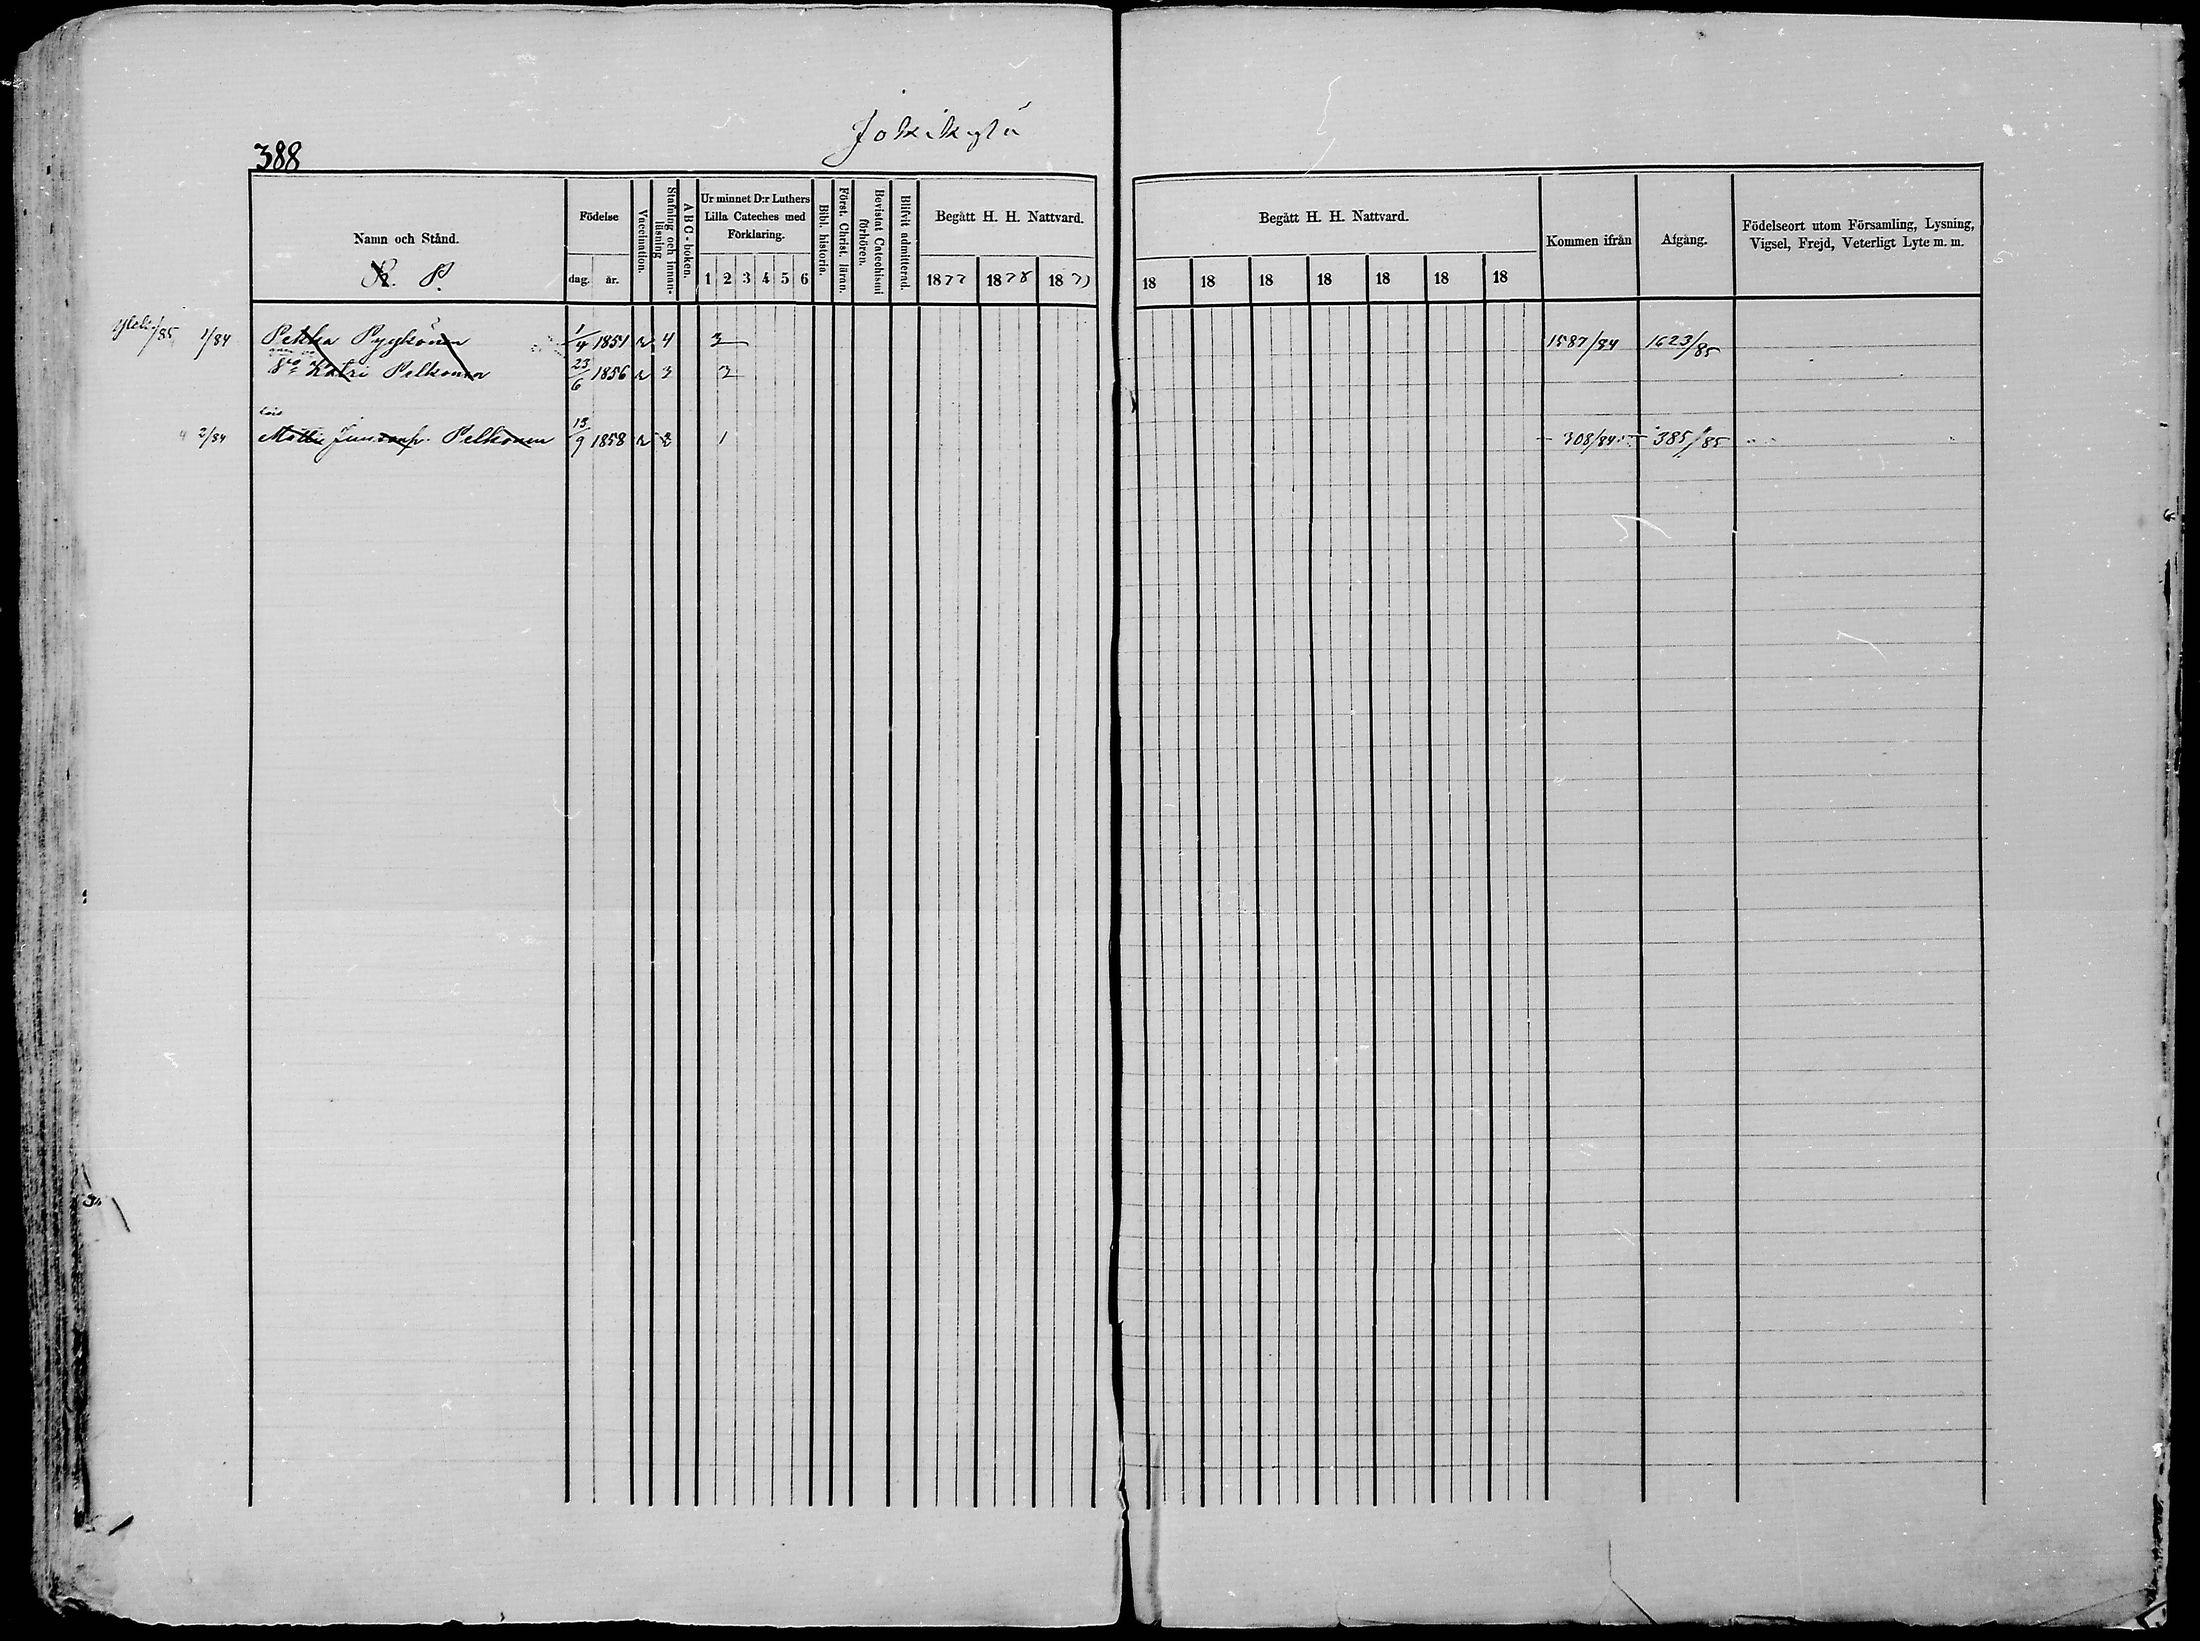 Jokikylä
388
Namn och Stånd.
K. P.
Födelse
dag. år.
Vaccination.
Stafning och innan-
läsning
A B C - boken.
Ur minnet D:r Luthers
Lilla Cateches med
Förklaring.
1 2 3 4 5 6
Bibl. historia.
Först. Christ. läran.
Bevistat Catechismi
förhören.
Blifvit admitterad.
Begått H. H. Nattvard.
1877 1878 1879
Begått H. H. Nattvard.
18 18 18 18 18 18 18
Kommen ifrån
Afgång.
Födelseort utom Församling, Lysning,
Vigsel, Frejd, Veterligt Lyte m. m.
/85 1/84 Pekka Pyykönen 1/4 1851 v 4 3 1587/84 1623/85
Katri Pelkonen 23/6 1856 v 3 2
lois
2/84 Matti Pelkonen 13/9 1858 v 2 1 308/84 385/85